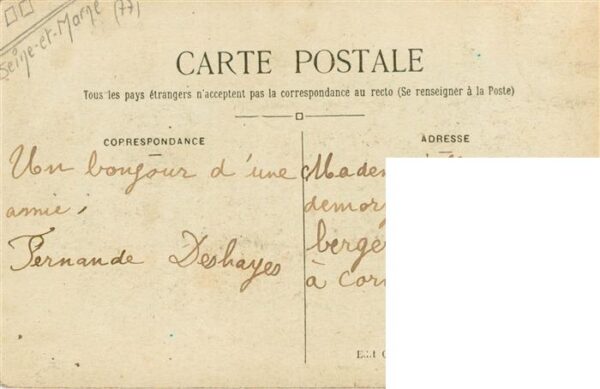 Seine-et-Marne (77)
CARTE POSTALE
Tous les pays étrangers n'acceptent pas la correspondance au recto (Se renseigner à la Poste)
CORRESPONDANCE
Un bonjour d'une
amie,
Fernande Deshayes
ADRESSE
Madem
demor
bergè
à cor